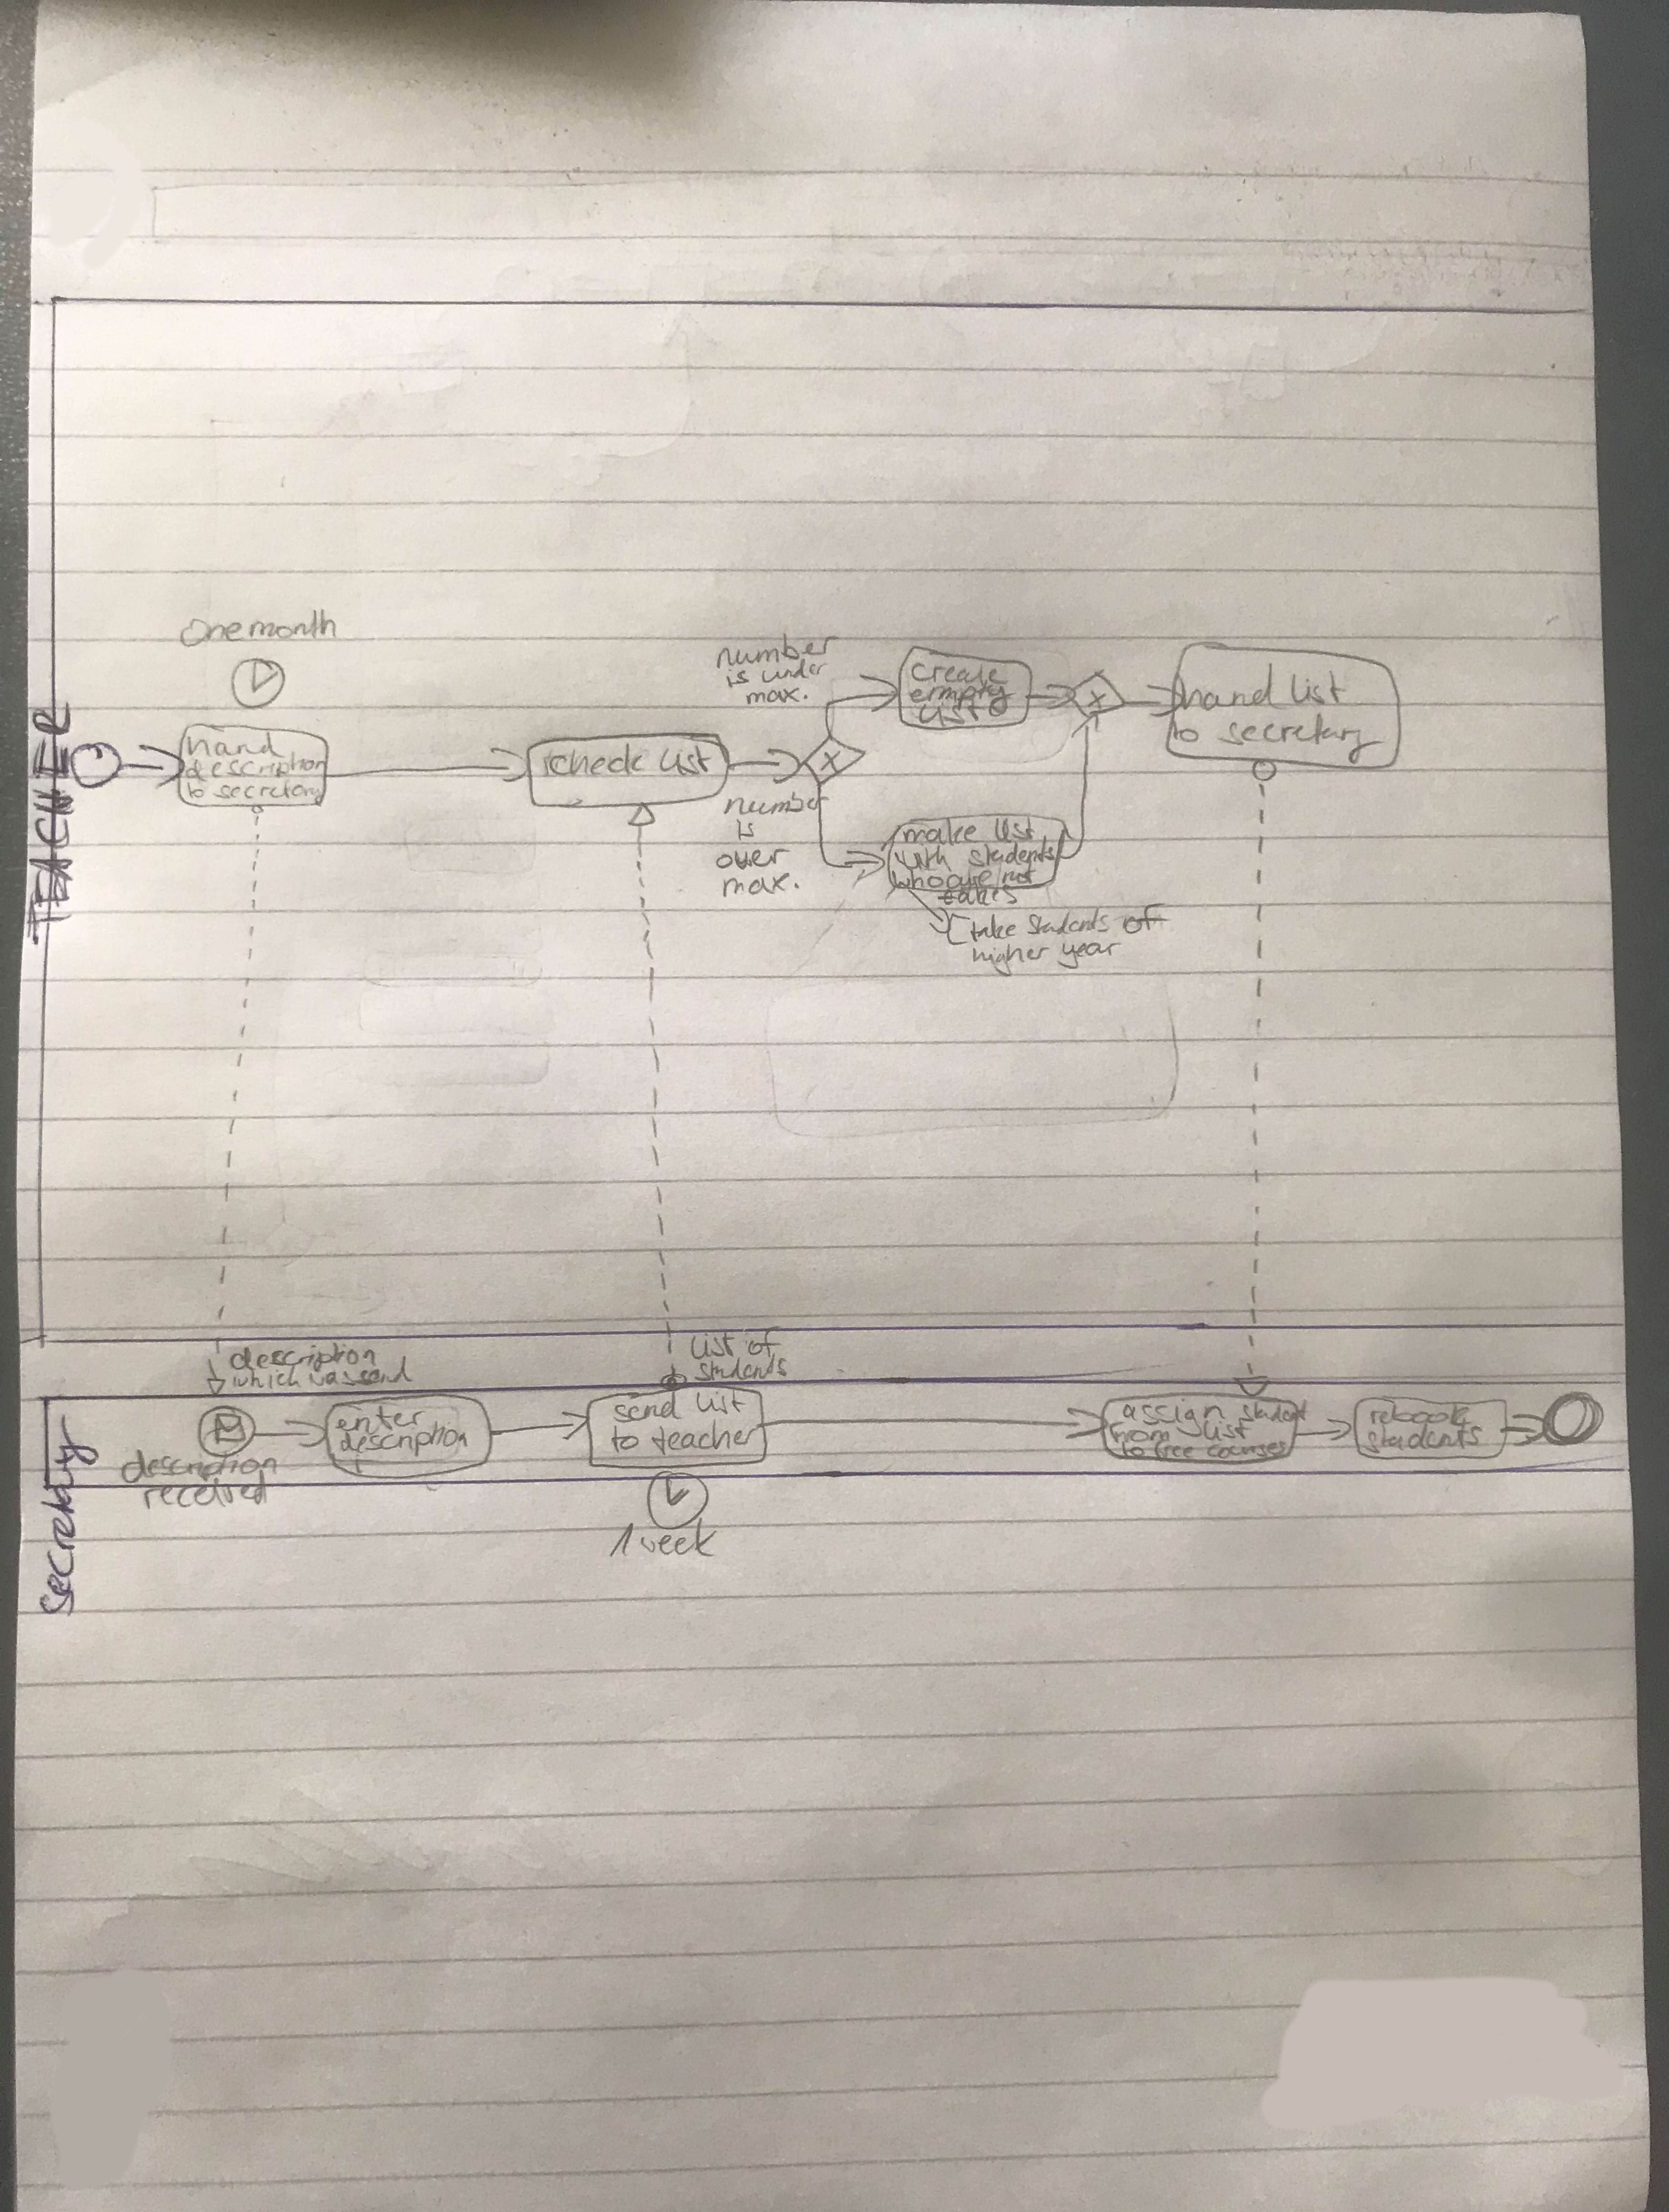 TEACHER
one month
hand
description
to secretary
check list
X
number
is under
max.
number
is
over
max.
create
empty
list
make list
with students
who are not
taken
take students of
higher year
X
hand list
to secretary
description
which was send
list of
students
secretary
description
received
enter
description
send list
to teacher
1 week
assign student
from list
to free courses
rebook
students